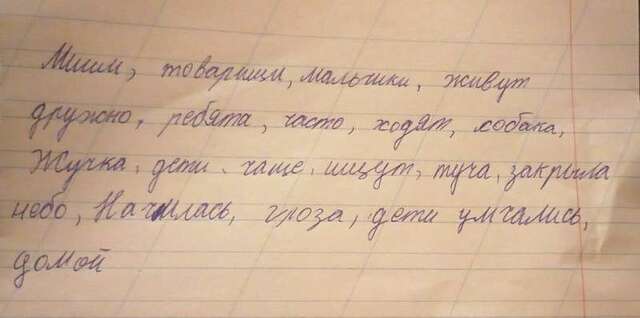 Мишм, товариши, мальчики, живут
дружно, ребята, часто, ходят, собака,
Жучка, дети. чаще. ищут, туча, закрыла
небо, Началась, гроза, дети умчались,
домой